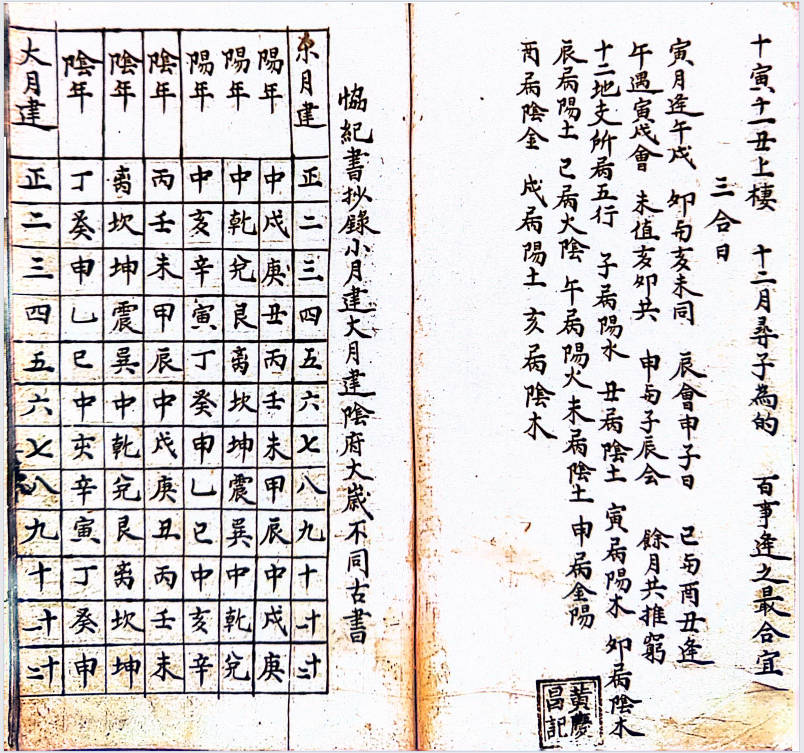 十寅十一丑上樓 十二月尋子為的 百事逢之最合宜
三合日
寅月逢午戌 卯与亥未同 辰會申子日 巳与酉丑逢
午遇寅戌會 未值亥卯共 申与子辰会 餘月共推窮
十二地支所属五行 子属陽水 丑属陰土 寅属陽木 卯属陰木
辰属陽土 巳属火陰 午属陽火 未属陰土 申属金陽
酉属陰金 戌属陽土 亥属陰木
黃慶
昌記
協紀書抄錄小月建大月建陰府大歲不同古書
小月建 正 二 三 四 五 六 七 八 九 十 十一 十二
陽年 中 戌 庚 丑 丙 壬 未 甲 辰 中 戌 庚
陽年 中 乾 兌 艮 离 坎 坤 震 巽 中 乾 兌
陽年 中 亥 辛 寅 丁 癸 申 乙 巳 中 亥 辛
陰年 丙 壬 未 甲 辰 中 戌 庚 丑 丙 壬 未
陰年 离 坎 坤 震 巽 中 乾 兌 艮 离 坎 坤
陰年 丁 癸 申 乙 巳 中 亥 辛 寅 丁 癸 申
大月建 正 二 三 四 五 六 七 八 九 十 十一 十二